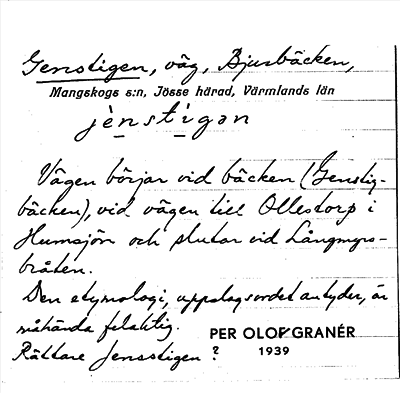 Genstigen, väg, Bjurbäcken,
Mangskogs s:n, Jösse härad, Värmlands län
jènstìgən
Vägen börjar vid bäcken (Genstig-
bäcken), vid vägen till Ollestorp i
Humsjön och slutar vid Långmyrs-
bråten.
Den etymologi, uppslagsordet antyder, är
måhända felaktig.
Rättare Jensstigen?
PER OLOF GRANÉR
1939